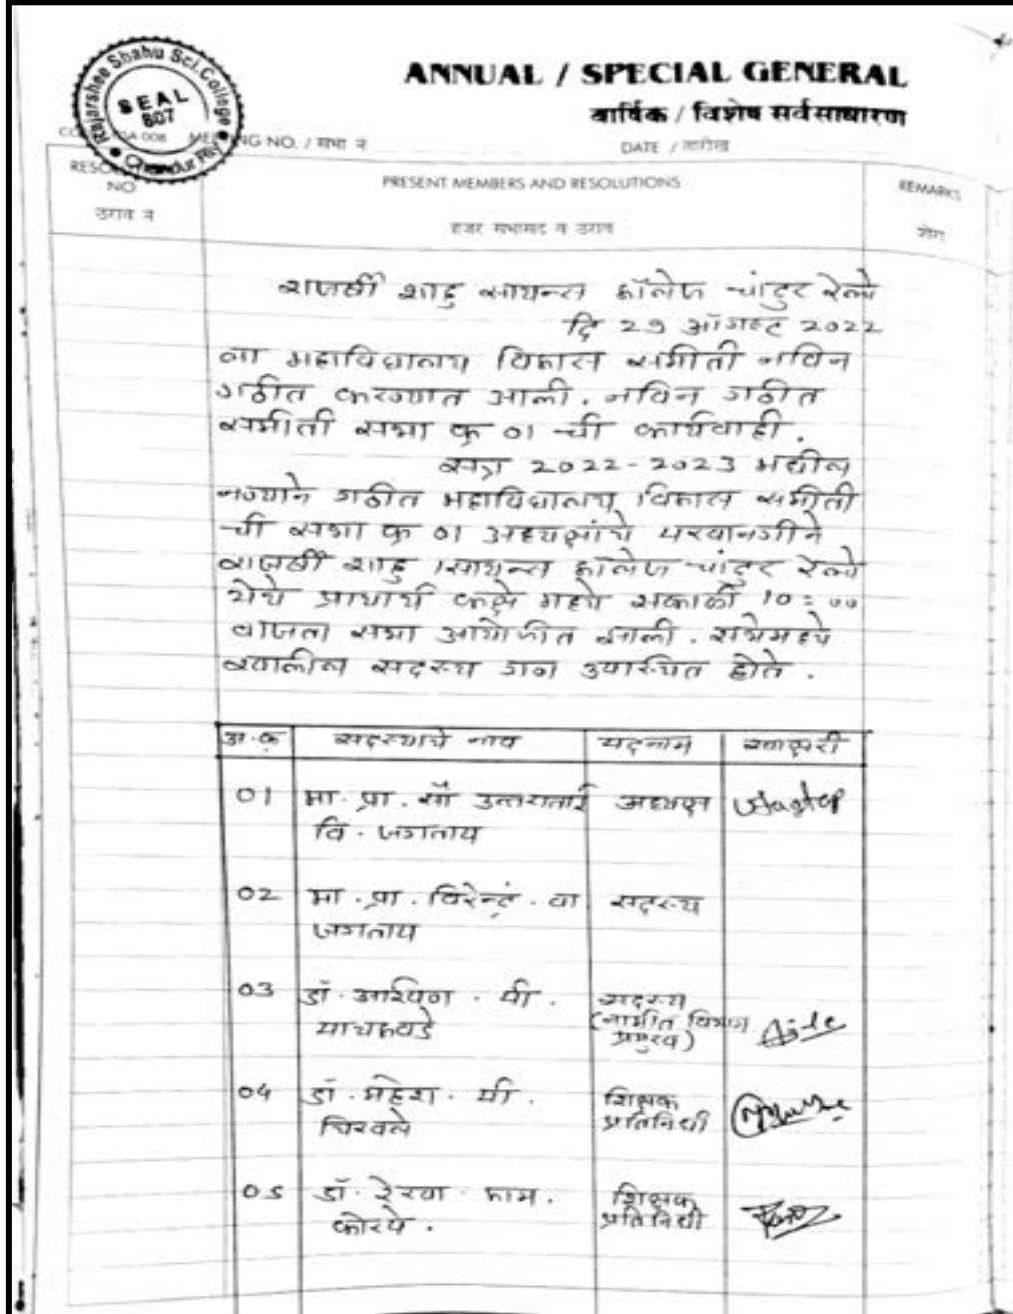 Rajarshee Shahu Sci. College
SEAL
607
Chandur Rly
ANNUAL / SPECIAL GENERAL
वार्षिक / विशेष सर्वसाधारण
NG NO. / सभा नं
DATE / तारीख
NO
ठराव नं
PRESENT MEMBERS AND RESOLUTIONS
हजर सभासद व ठराव
REMARKS
शेरा
राजर्षी शाहु सायन्स कॉलेज चांदुर रेल्वे
दि 29 ऑगस्ट 2022
ला महाविद्यालय विकास समीती नविन
गठीत करण्यात आली. नविन गठीत
समीती सभा क्र ०१ ची कार्यवाही.
सत्र 2022-2023 मधील
नव्याने गठीत महाविद्यालय विकास समीती
ची सभा क्र ०१ अध्यक्षांचे परवानगीने
राजर्षी शाहु सायन्स कॉलेज चांदुर रेल्वे
येथे प्राचार्य कक्षे मध्ये सकाळी 10=00
वाजता सभा आयोजीत झाली. सभेमध्ये
खालील सदस्य गण उपस्थित होते.
अ.क्र सदस्याचे नाव पदनाम स्वाक्षरी
01 मा. प्रा. सौ उत्तराताई अध्यक्ष
वि. जगताप
02 मा. प्रा. विरेन्द्र. वा सदस्य
जगताप
03 डॉ. पी. सदस्य
(नामीत विभाग
प्रमुख)
04 डॉ. महेश. पी. शिक्षक
चिखले प्रतिनिधी
05 डॉ. रेखा. शिक्षक
कोरपे. प्रतिनिधी